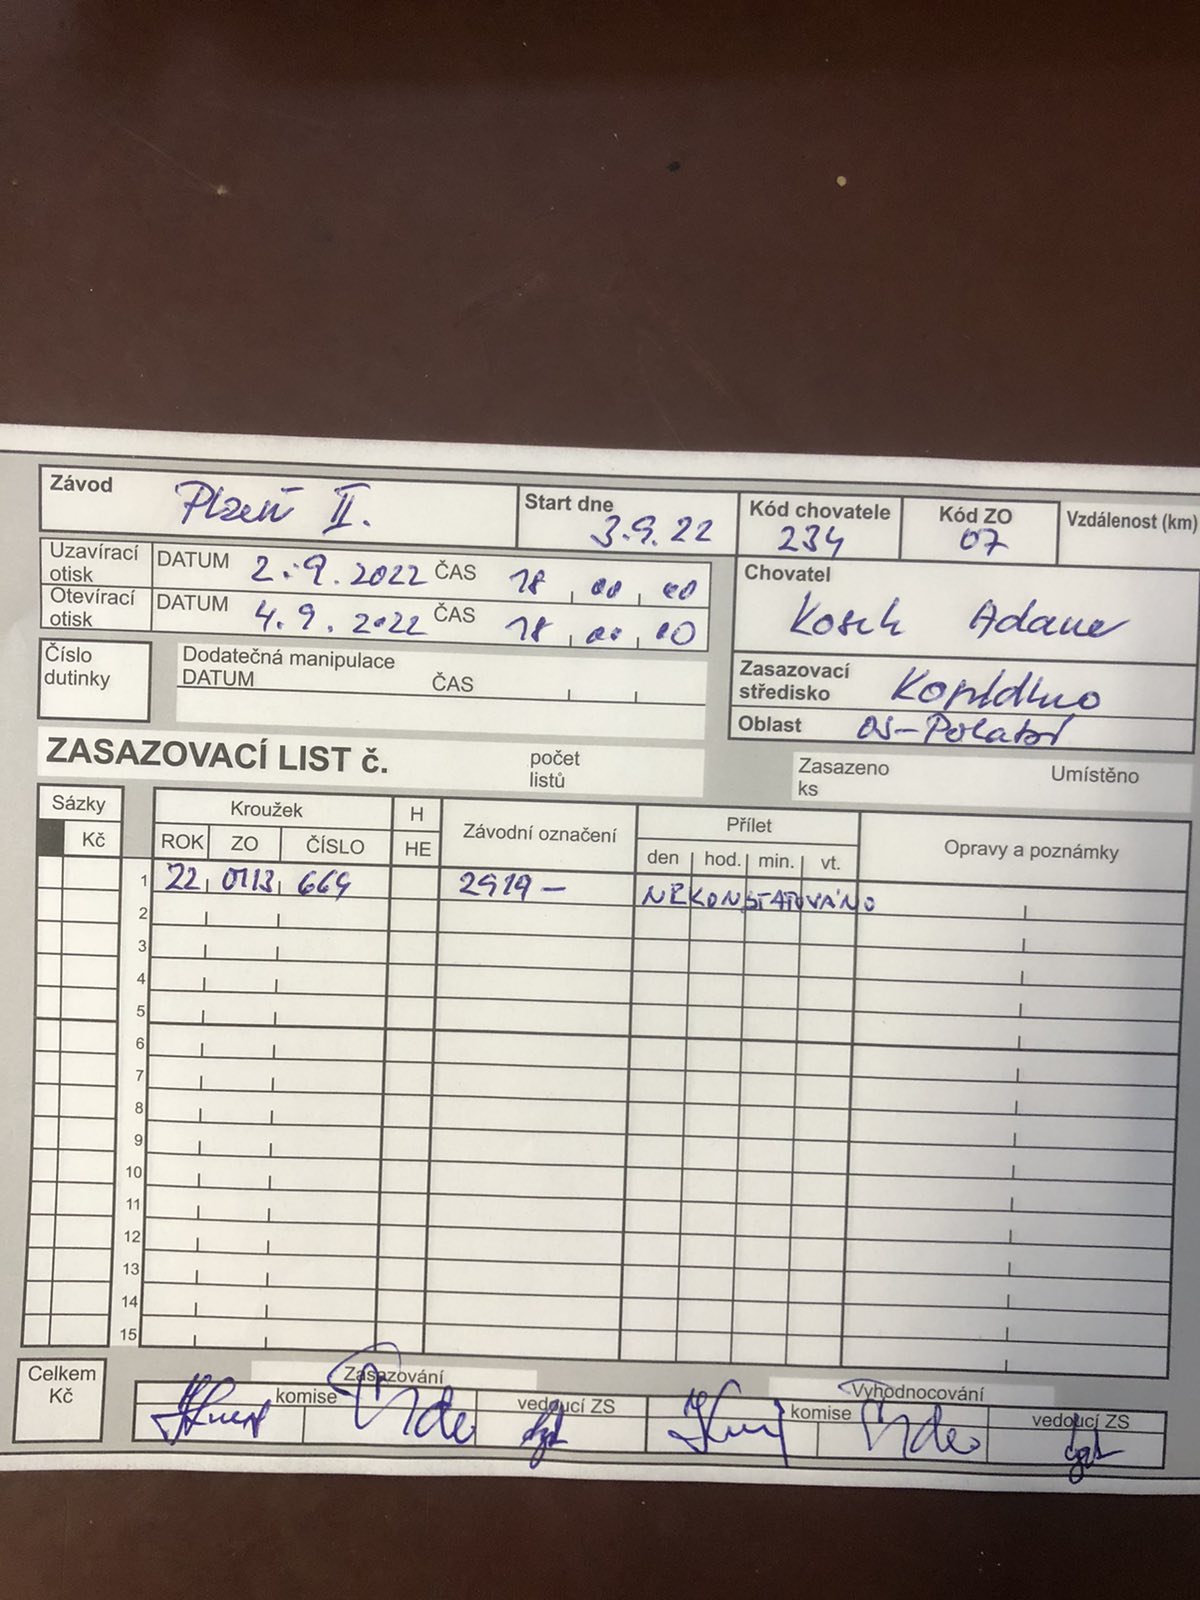 Závod Plzeň II. Start dne 3.9.22 Kód chovatele 234 Kód ZO 07 Vzdálenost (km)
Uzavírací otisk DATUM 2.9.2022 ČAS 18 00 00
Otevírací otisk DATUM 4.9.2022 ČAS 18 00 00
Chovatel
Kosek
Číslo dutinky
Dodatečná manipulace
DATUM ČAS
Zasazovací středisko Kopidlno
Oblast OS-Polabí
ZASAZOVACÍ LIST č. počet listů
Zasazeno ks Umístěno
Sázky Kroužek H Závodní označení Přílet Opravy a poznámky
Kč ROK ZO ČÍSLO HE den hod. min. vt.
1 22 0113 664 2919 – NEKONSTATOVÁNO
2
3
4
5
6
7
8
9
10
11
12
13
14
15
Celkem Kč
Zasazování
komise vedoucí ZS
Vyhodnocování
komise vedoucí ZS